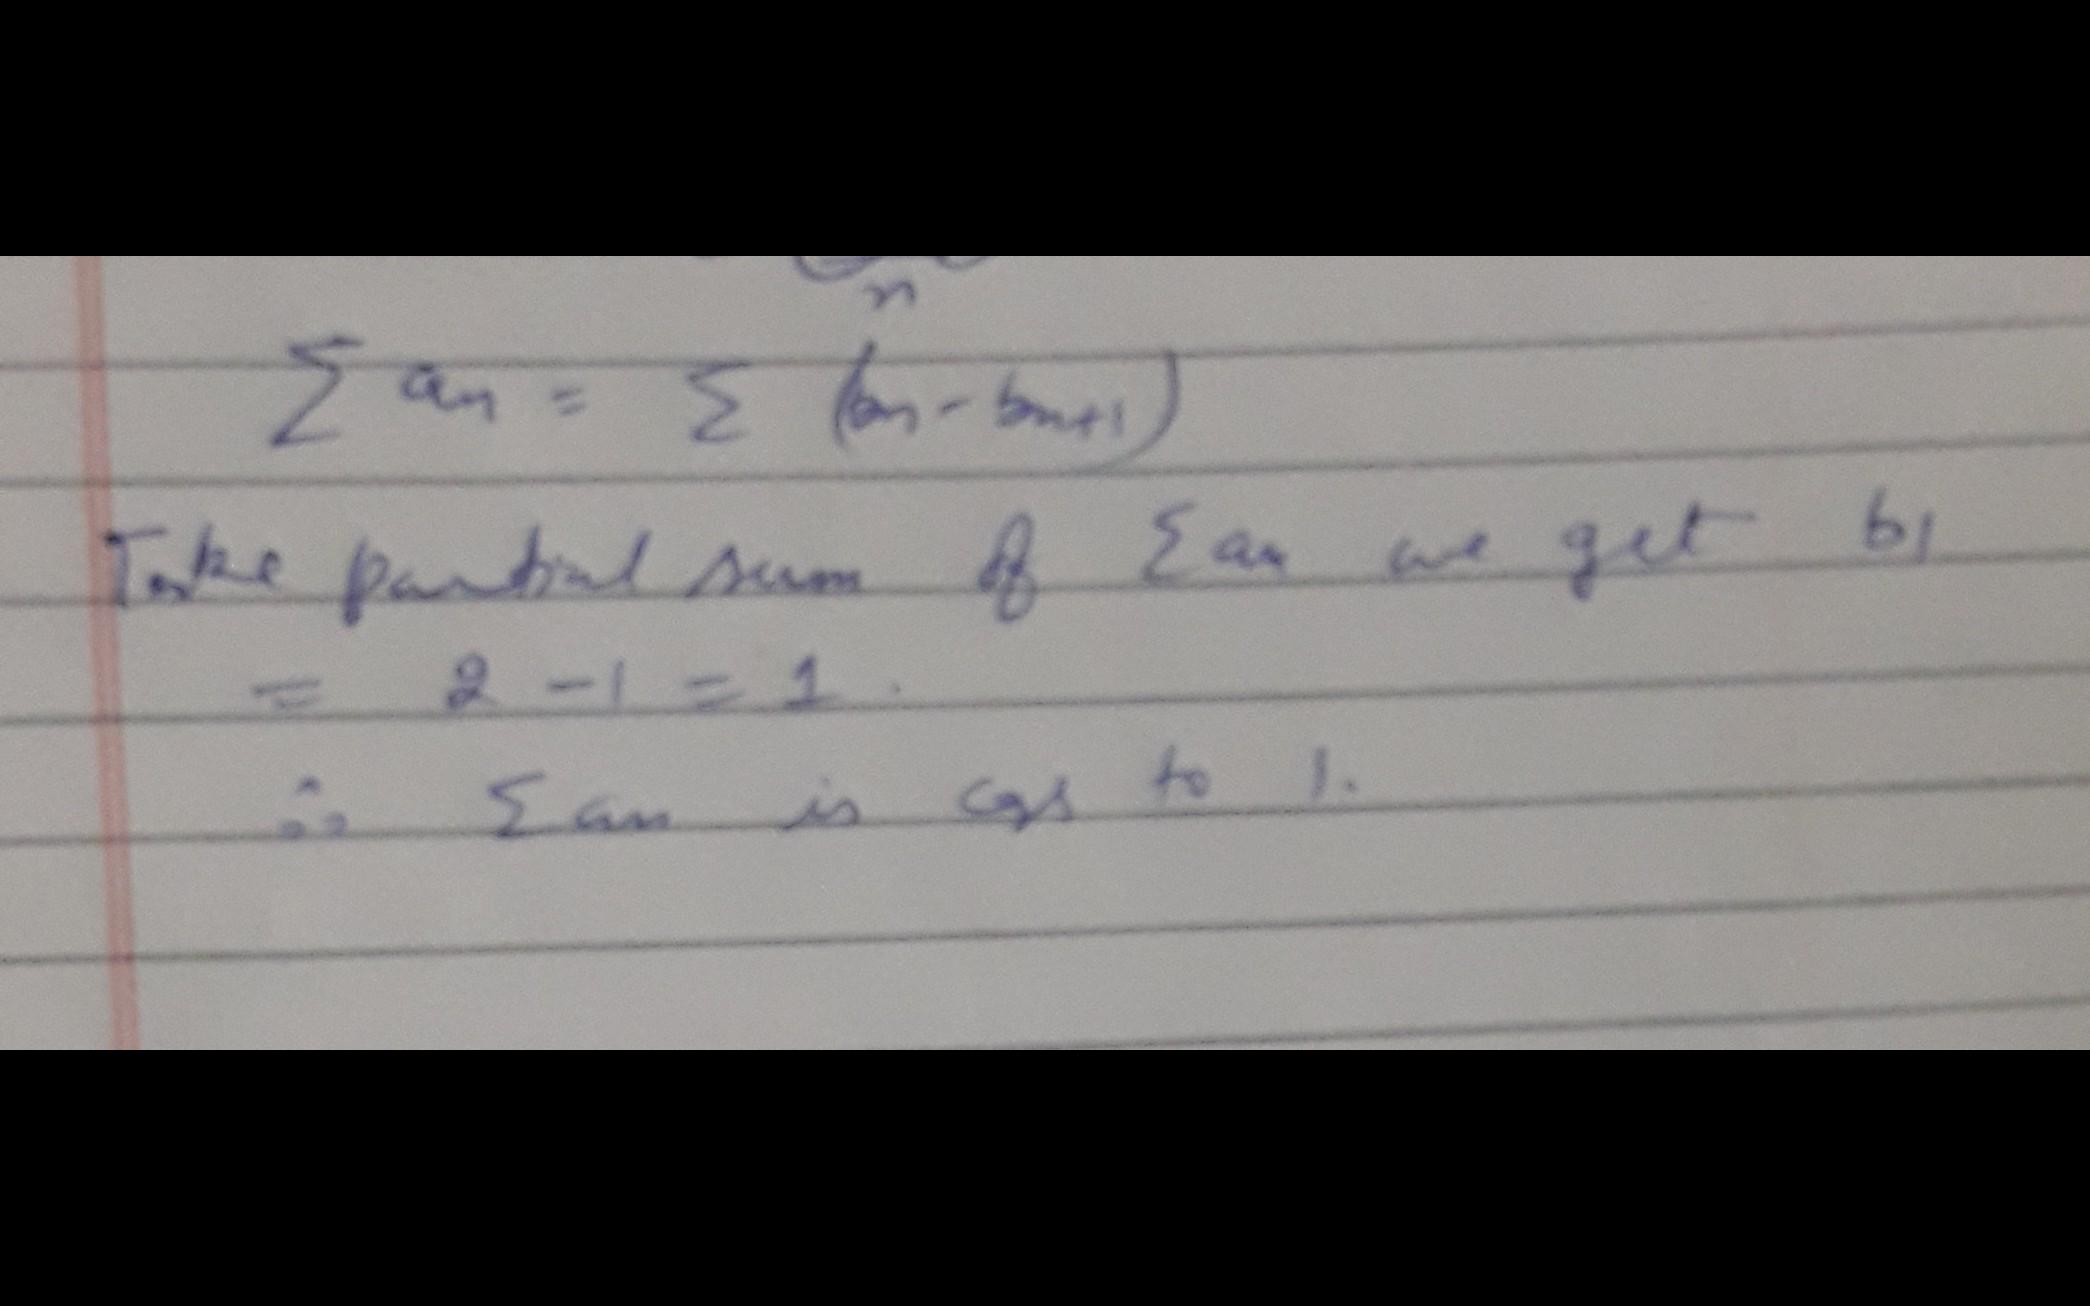 n
Σ an = Σ (bn - bn+1)
Take partial sum of Σ an we get b1
= 2 - 1 = 1.
∴ Σ an is cgs to 1.